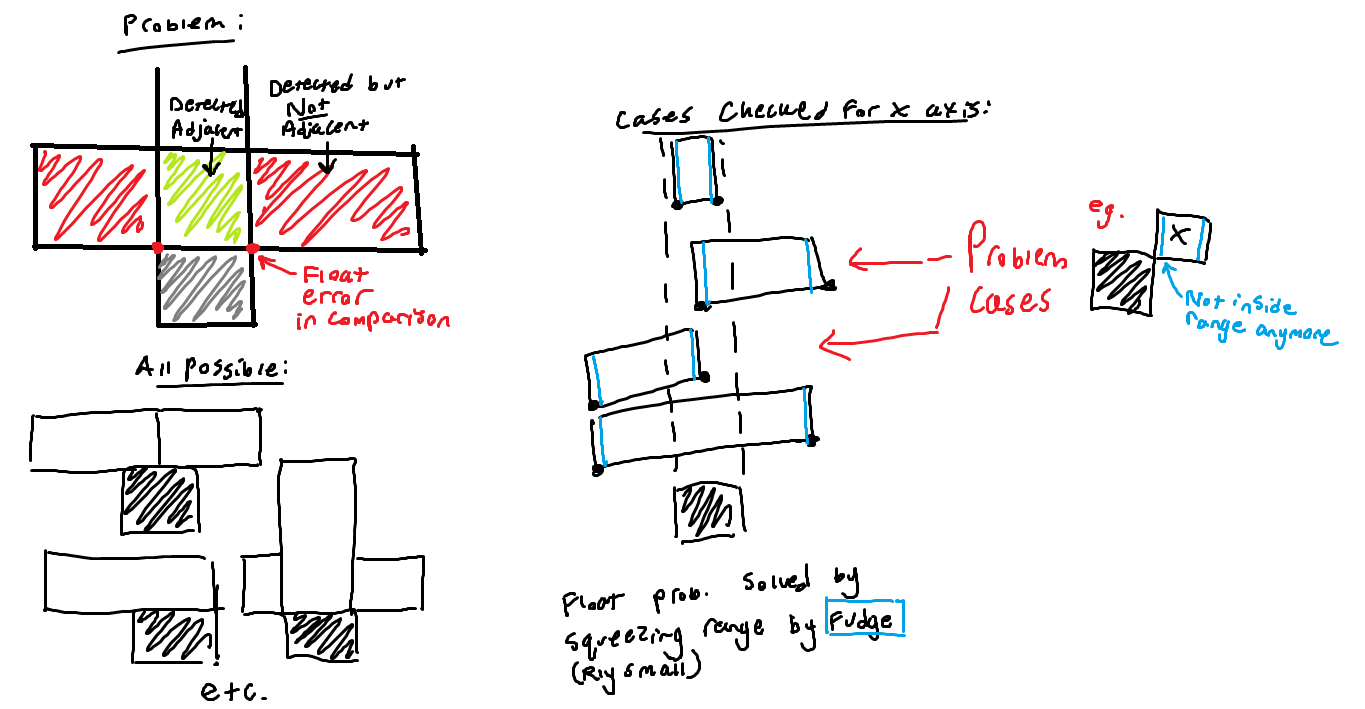 Problem:
Detected
Adjacent
Detected but
Not
Adjacent
Float
error
in comparison
All possible:
etc.
Cases Checked For x axis:
Problem
cases
eg.
X
Not inside
range anymore
Float prob. solved by
squeezing range by Fudge
(Rly small)